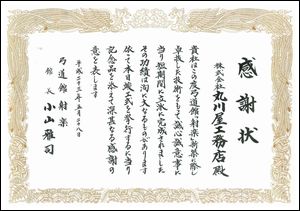 感謝状
株式会社
丸川屋工務店殿
貴社はこの度弓道館射楽新築に際し
卓抜した技術をもって誠心誠意事に
当り短期間に立派に完成されました
その功績は洵に大なるものがあります
依って本日竣工式を挙行するに当り
記念品を添えて深甚なる感謝の
意を表します
平成二十三年二月二十八日
弓道館射楽
館長 小山雅司